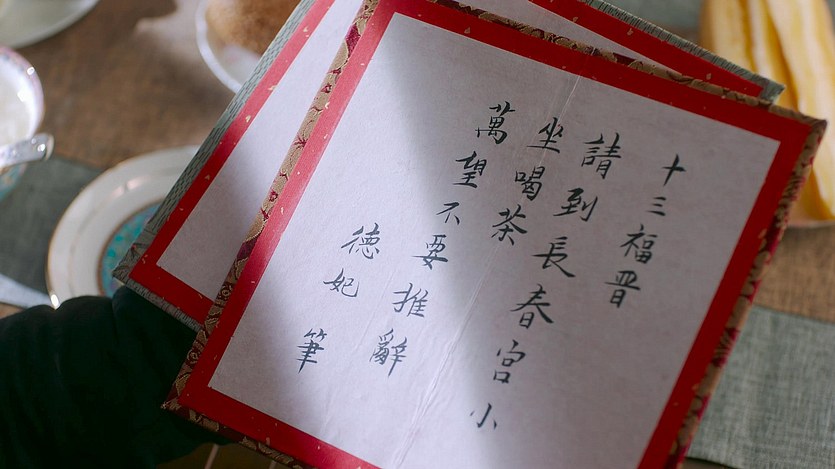 十三福晋
請到長春宮小
坐喝茶
萬望不要推辭
德妃 筆